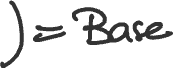 ) = Base